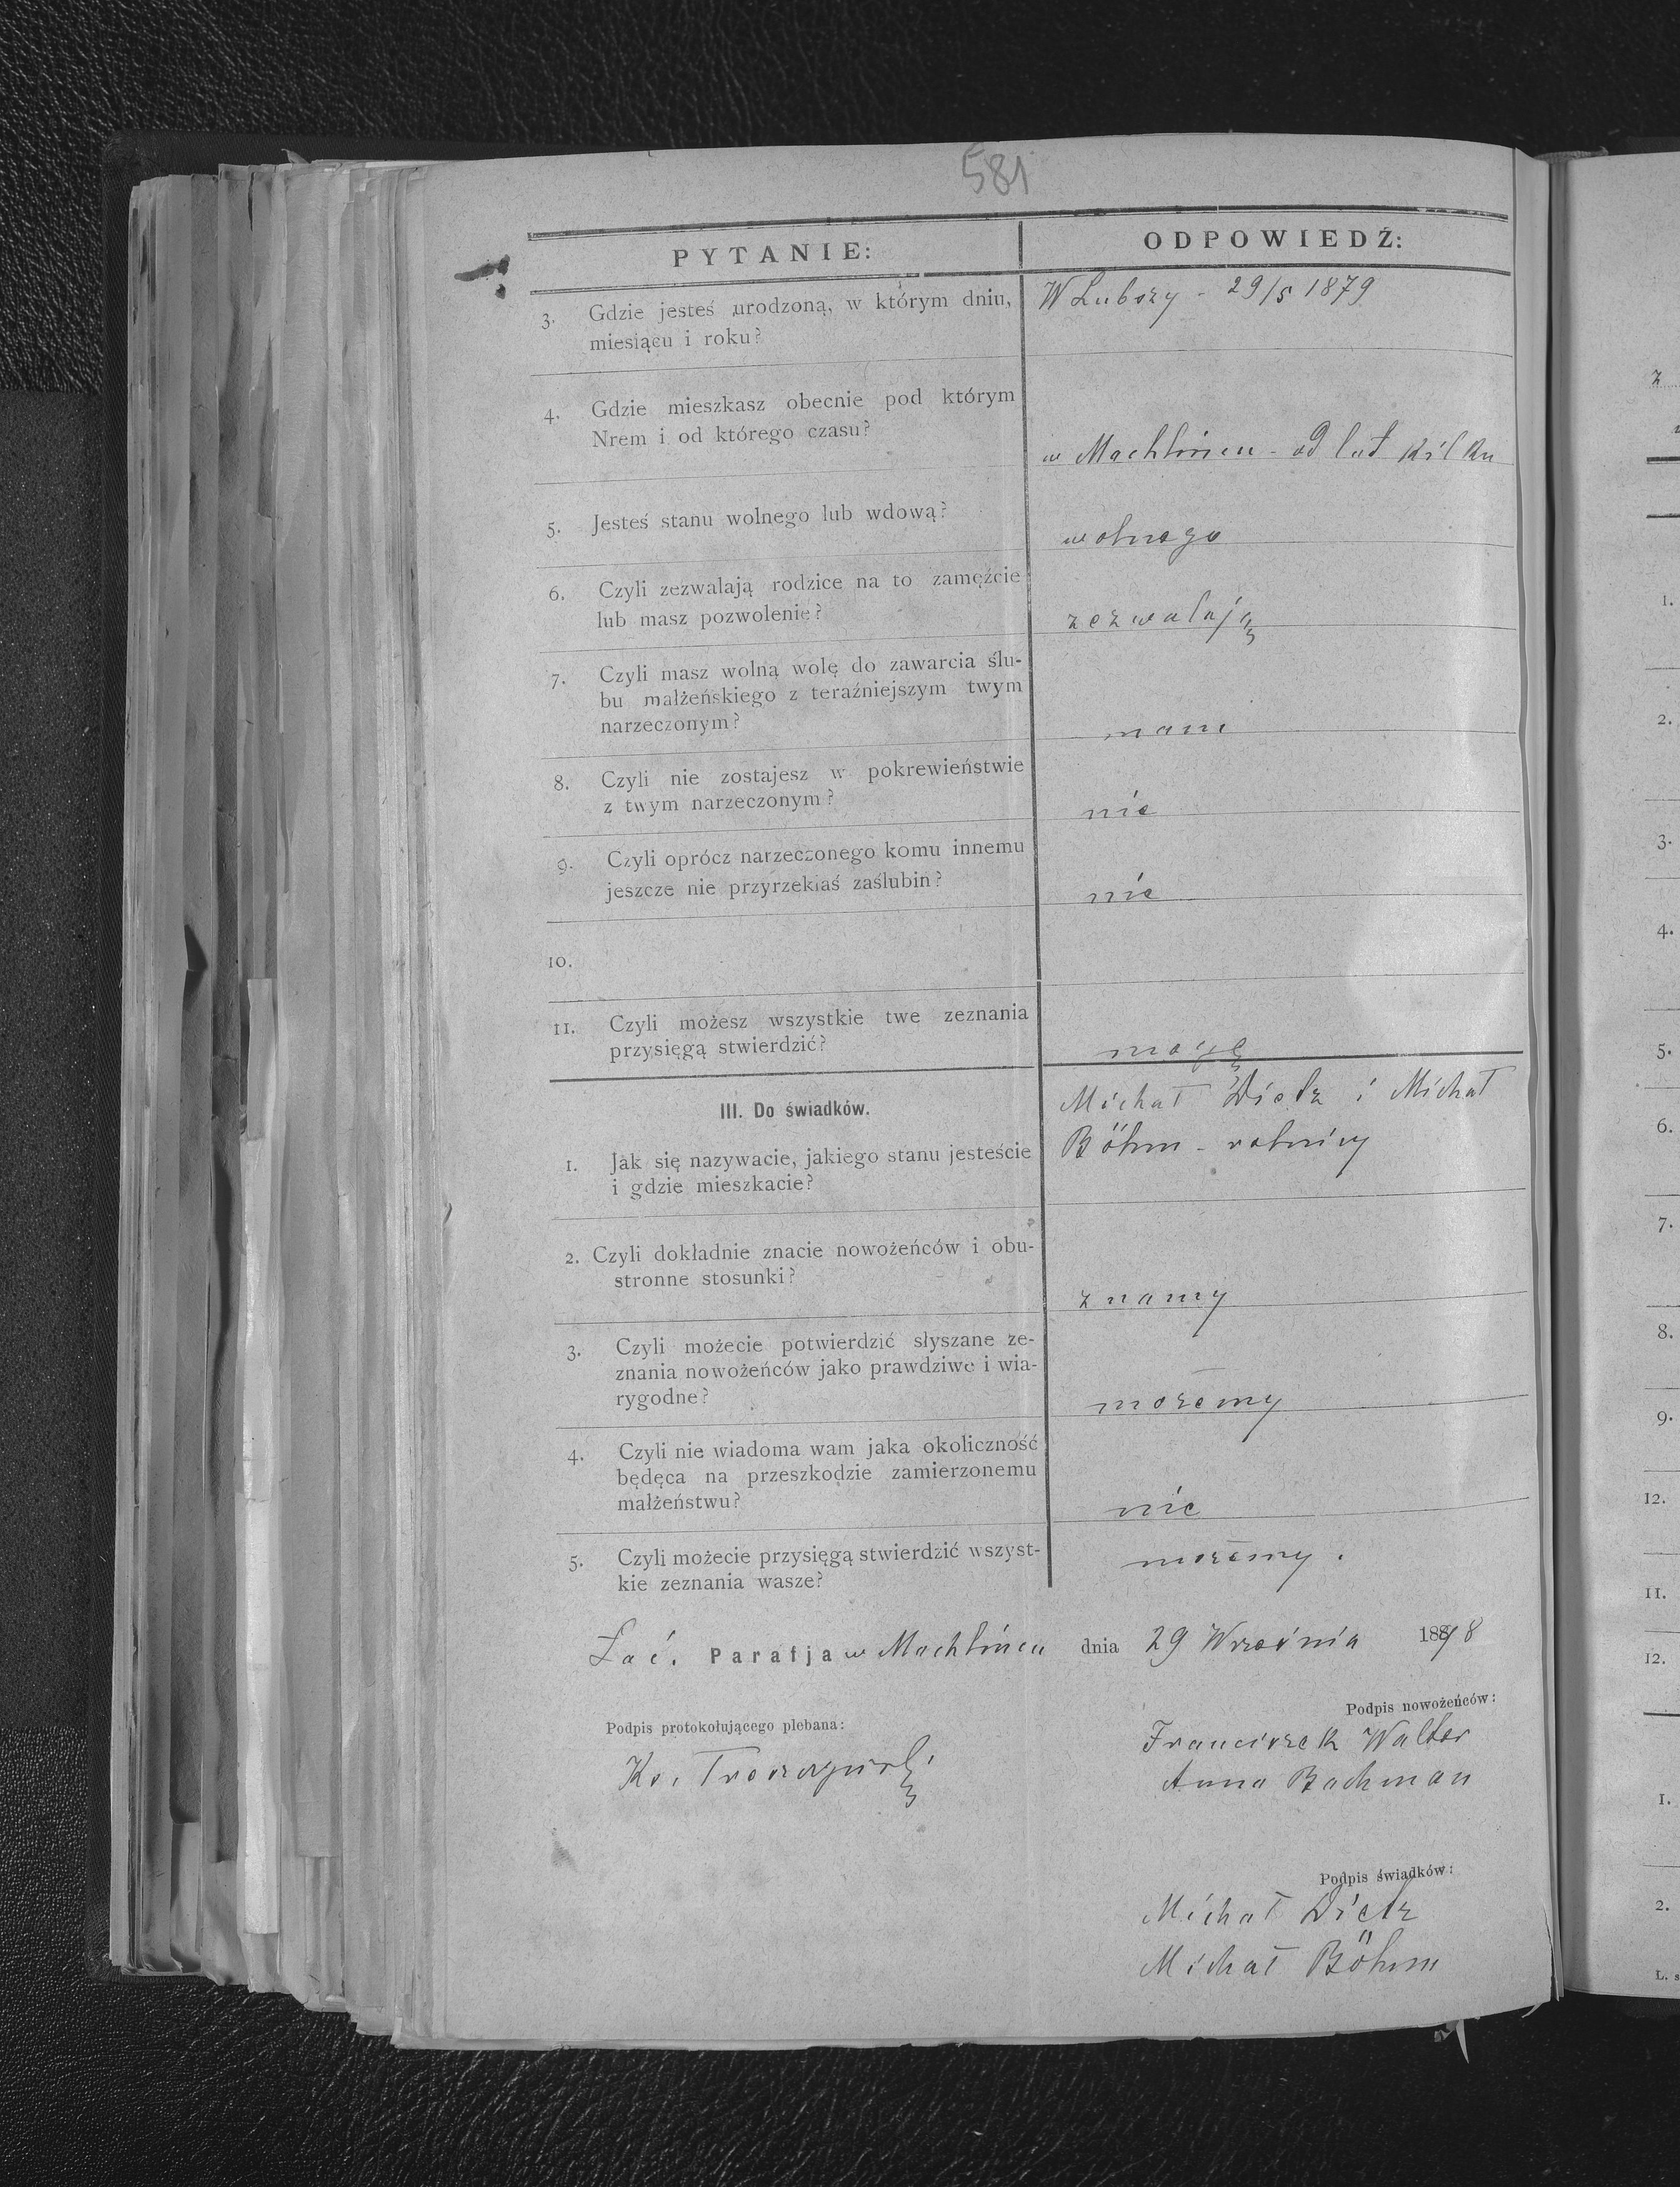 581
PYTANIE:
ODPOWIEDŹ:
3. Gdzie jesteś urodzoną, w którym dniu,
miesiącu i roku?
W Lubszy - 29/5 1879
4. Gdzie mieszkasz obecnie pod którym
Nrem i od którego czasu?
w Machlińcu - od lat kilku
5. Jesteś stanu wolnego lub wdową?
wolnego
6. Czyli zezwalają rodzice na to zamęźcie
lub masz pozwolenie?
zezwalają
7. Czyli masz wolną wolę do zawarcia ślu-
bu małżeńskiego z teraźniejszym twym
narzeczonym?
mam
8. Czyli nie zostajesz w pokrewieństwie
z twym narzeczonym?
nie
9. Czyli oprócz narzeczonego komu innemu
jeszcze nie przyrzekłaś zaślubin?
nie
10.
11. Czyli możesz wszystkie twe zeznania
przysięgą stwierdzić?
mogę
III. Do świadków.
1. Jak się nazywacie, jakiego stanu jesteście
i gdzie mieszkacie?
Michał Dietz i Michał
Böhm - rolnicy
2. Czyli dokładnie znacie nowożeńców i obu-
stronne stosunki?
znamy
3. Czyli możecie potwierdzić słyszane ze-
znania nowożeńców jako prawdziwe i wia-
rygodne?
możemy
4. Czyli nie wiadoma wam jaka okoliczność
będęca na przeszkodzie zamierzonemu
małżeństwu?
nie
5. Czyli możecie przysięgą stwierdzić wszyst-
kie zeznania wasze?
możemy.
Łać. Parafja w Machlińcu dnia 29 Września 1898
Podpis nowożeńców:
Podpis protokołującego plebana:
Franciszek Walter
Ks.
Anna Bachman
Podpis świadków:
Michał Dietz
Michał Böhm
z
1.
2.
3.
4.
5.
6.
7.
8.
9.
12.
11.
12.
1.
2.
L. s